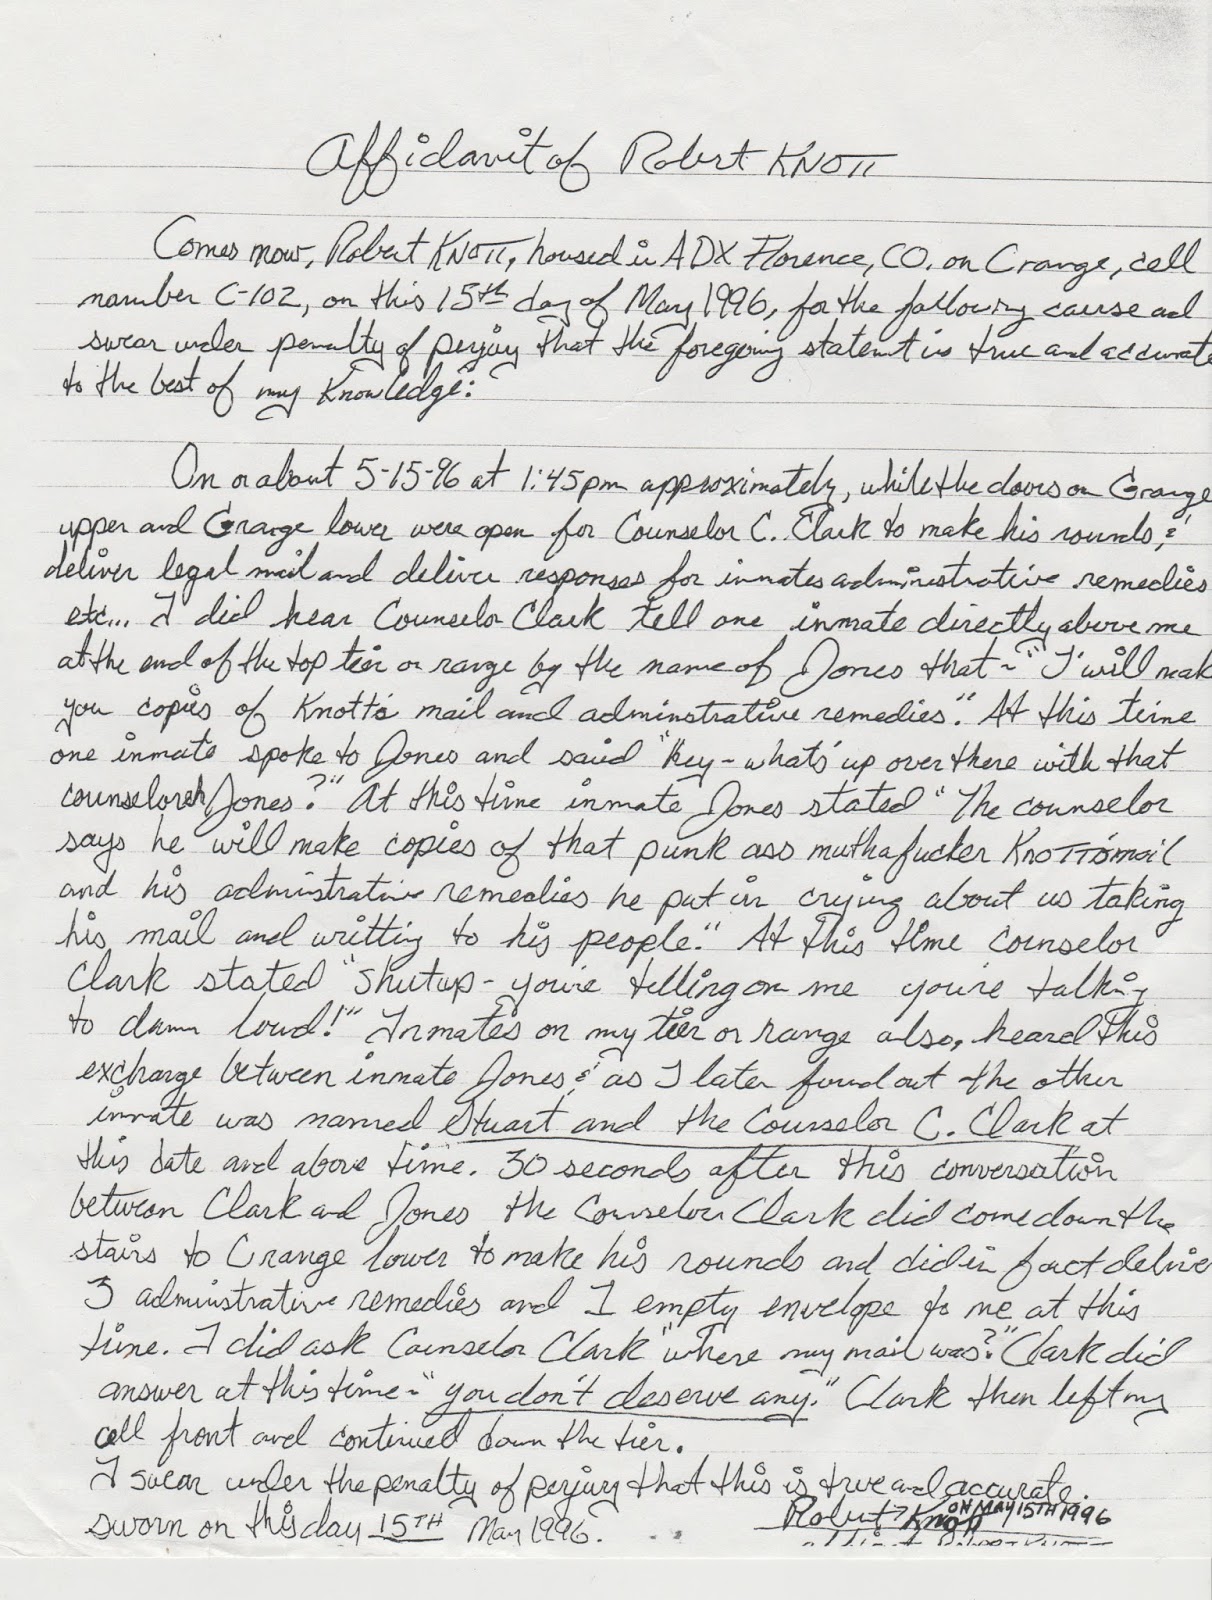 Affidavit of Robert KNOTT
Comes now, Robert KNOTT, housed in ADX Florence, CO. on C range, cell
number C-102, on this 15th day of May 1996, for the following cause and
swear under penalty of perjury that the foregoing statement is true and accurate
to the best of my Knowledge:
On or about 5-15-96 at 1:45pm approximately, while the doors on C range
upper and C range lower were open for Counselor C. Clark to make his rounds, &
deliver legal mail and deliver responses for inmates administrative remedies
etc... I did hear Counselor Clark tell one inmate directly above me
at the end of the top tier or range by the name of Jones that - "I will mak
you copies of Knott's mail and adminstrative remedies." At this time
one inmate spoke to Jones and said "Hey - what's up over there with that
counselor eh Jones?" At this time inmate Jones stated "The counselor
says he will make copies of that punk ass muthafucker KnoTT's mail
and his administrative remedies he put in crying about us taking
his mail and writting to his people." At this time counselor
Clark stated "Shutup - you're telling on me you're talking
to damn loud!" Inmates on my tier or range also, heard this
exchange between inmate Jones, & as I later found out the other
inmate was named Stuart and the Counselor C. Clark at
this date and above time. 30 seconds after this conversation
between Clark and Jones the Counselor Clark did come down the
stairs to C range lower to make his rounds and did in fact delive
3 administrative remedies and 1 empty envelope to me at this
time. I did ask Counselor Clark "where my mail was?" Clark did
answer at this time - "you don't deserve any." Clark then left my
cell front and continued down the tier.
I swear under the penalty of perjury that this is true and accurate.
sworn on this day 15TH May 1996.
Robert Knott ON MAY 15TH 1996